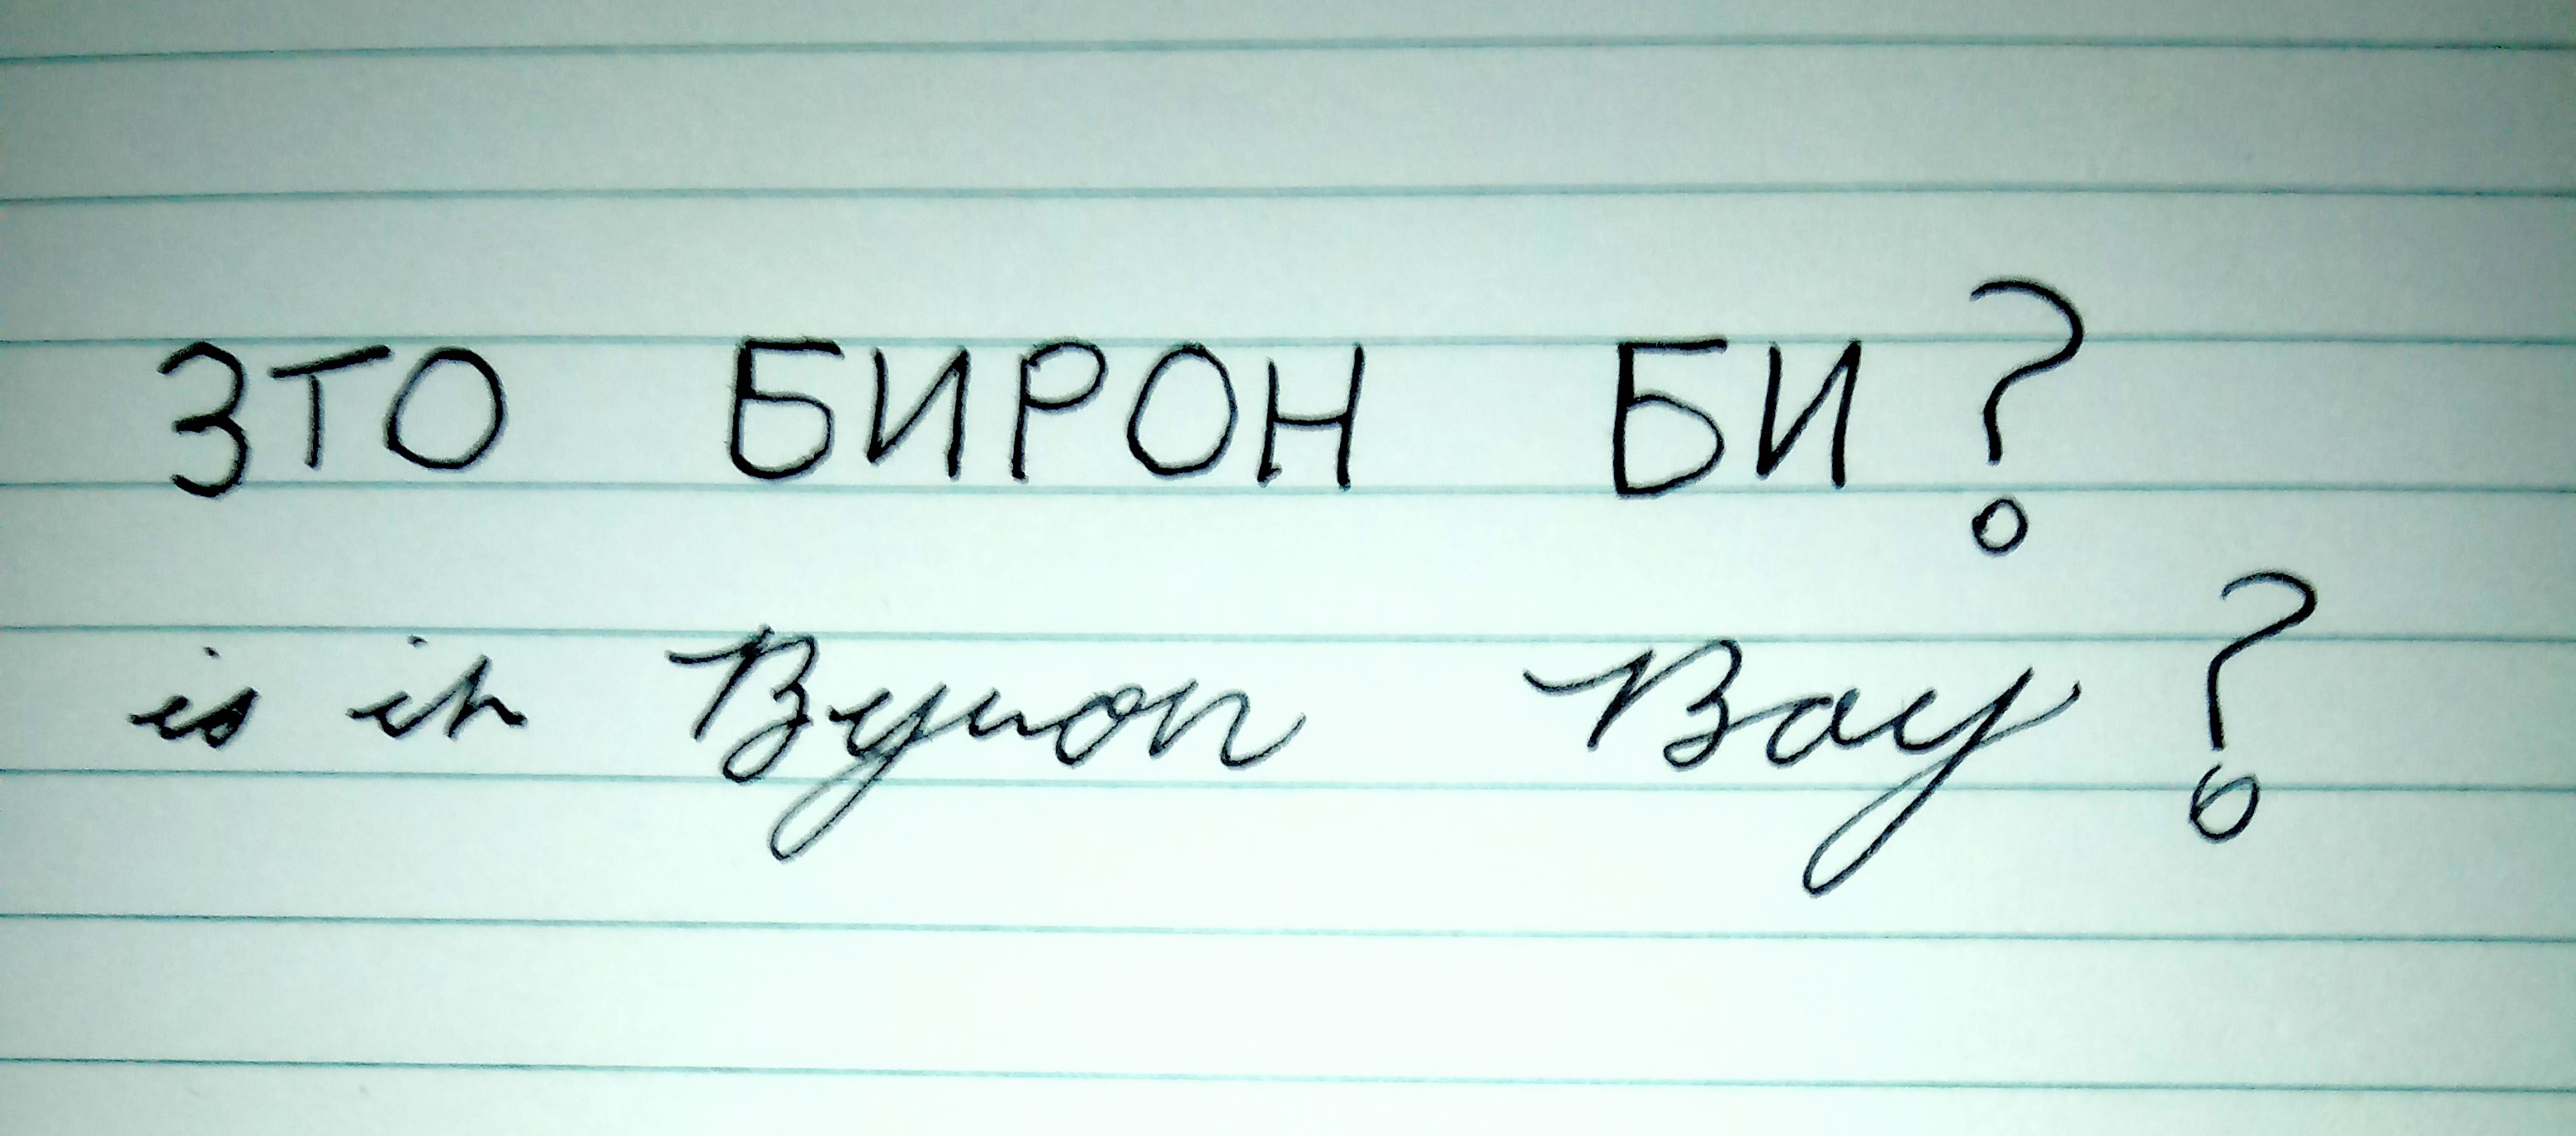 ЗТО БИРОН БИ?
is it Byron Bay?